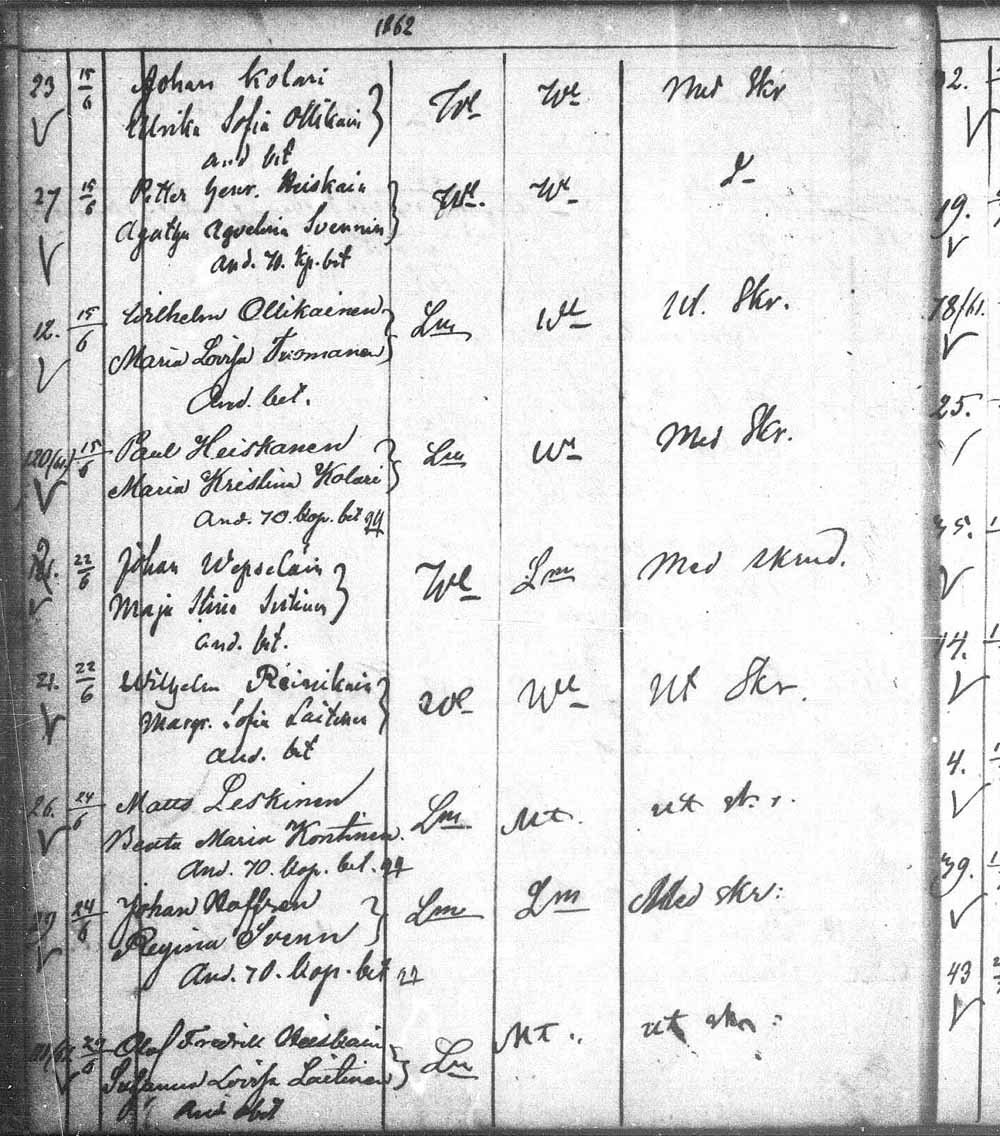 1862
23 15/6 Johan Kolari
Ulrika Sofia Ollikain } Wl Wl Med Skr
and bet
27 15/6 Petter Henr. Heiskain
Agatha Agvelina Svennin } Wl. Wl D-
and. 70. kp. bet
12. 15/6 Wilhelm Ollikainen
Maria Lovisa Tuomanen } Lm Wl Ut. Skr.
And. bet.
120/61. 15/6 Paul Heiskanen
Maria Kristina Kolari } Lm Wl Med Skr.
And. 70. kop. bet
22/6 Johan Wepselain
Maja Stina Sutinen } Wl Lm Med skrud.
and. bet.
21. 22/6 Wilhelm Reinikain
Margr. Sofia Laitinen } Wl Wl Ut Skr.
and. bet
26. 24/6 Matts Leskinen
Beata Maria Kontinen Lm Mt. ut sk..
And. 70. kop. bet.
29 24/6 Johan Haffren
Regina Svenn } Lm Lm Med skr:
And. 70. kop. bet
29/6 Olof Fredrik Heiskain
Susanna Lovisa Laitinen } Lm Mt.. ut skr:
And bet
19.
78/61.
25.
35.
14.
4.
39.
43